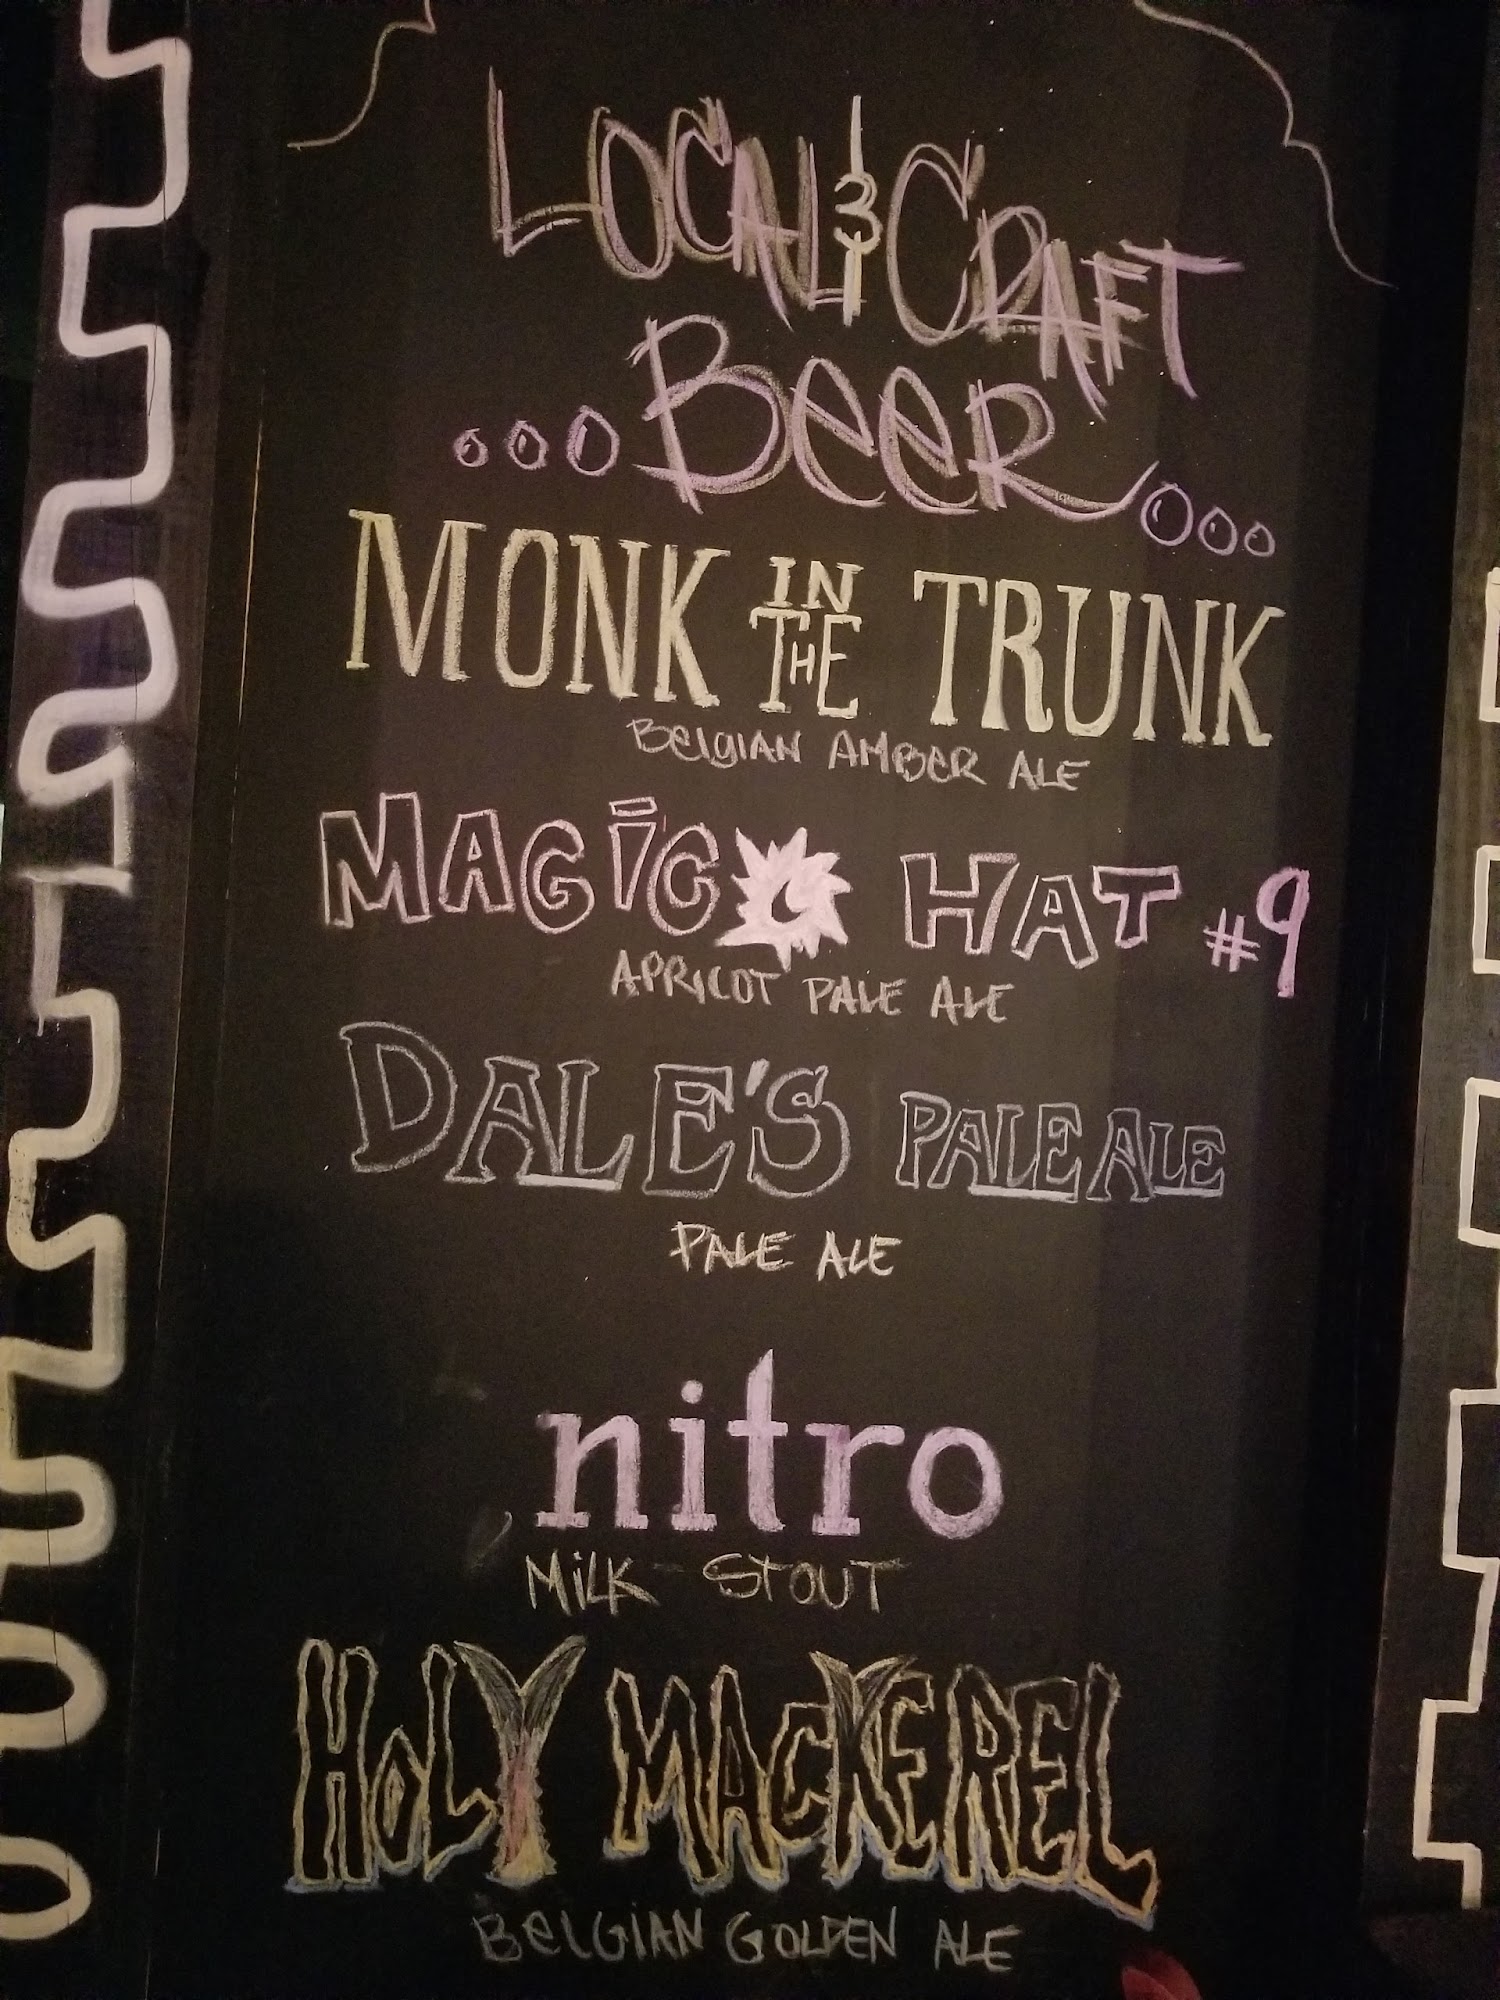 LOCAL & CRAFT
BEER
MONK IN THE TRUNK
BELGIAN AMBER ALE
MAGIC HAT #9
APRICOT PALE ALE
DALE'S PALE ALE
PALE ALE
nitro
MILK STOUT
HOLY MACKEREL
BELGIAN GOLDEN ALE